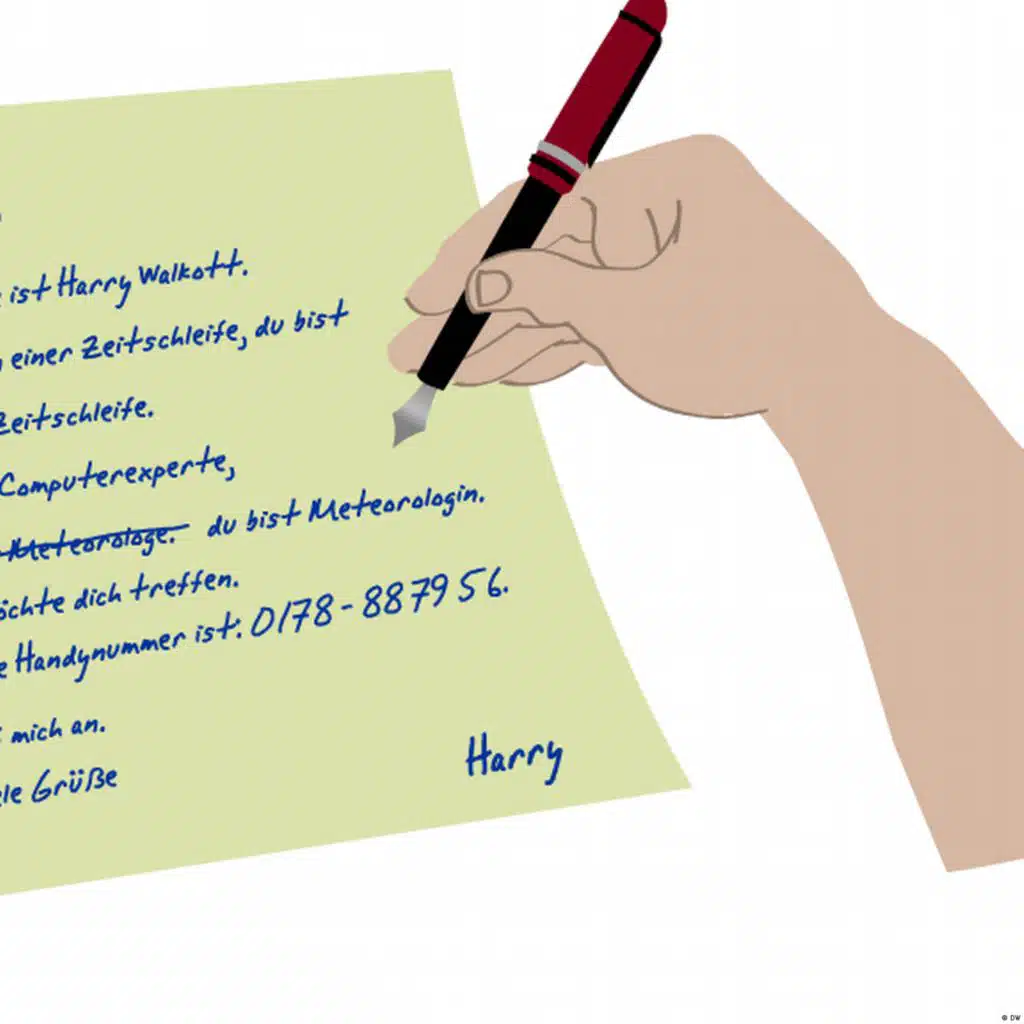 ist Harry Walkott.
einer Zeitschleife, du bist
Zeitschleife.
Computerexperte,
Meteorologe. du bist Meteorologin.
dich treffen.
Handynummer ist: 0178-8879 56.
mich an.
Grüße
Harry
© DW